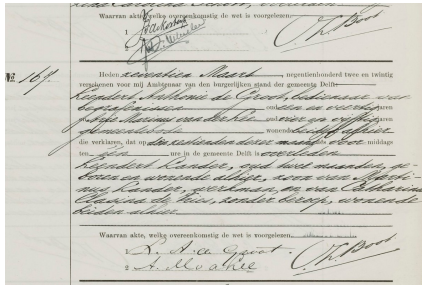 Waarvan akte, welke overeenkomstig de wet is voorgelezen.
1
2
Ch Boot
No. 167.
Heden zeventien Maart negentienhonderd twee en twintig
verschenen voor mij Ambtenaar van den burgerlijken stand der gemeente Delft:
Leendert Anthonie de Groot, bedienaar van
begrafenissen oud een en veertig jaren
en oud vier en vijftig jaren
gemeentebode wonende beiden alhier
die verklaren, dat op den dezer maand voor middags
ten ure in de gemeente Delft is overleden
Leendert Kander, oud maanden, ge-
boren en wonende alhier, zoon van Marti-
nus Kander, werkman, en van Catharina
Clasina zonder beroep, wonende
beiden alhier.
Waarvan akte, welke overeenkomstig de wet is voorgelezen.
1 L. A. de Groot
2 A. M.
Ch Boot